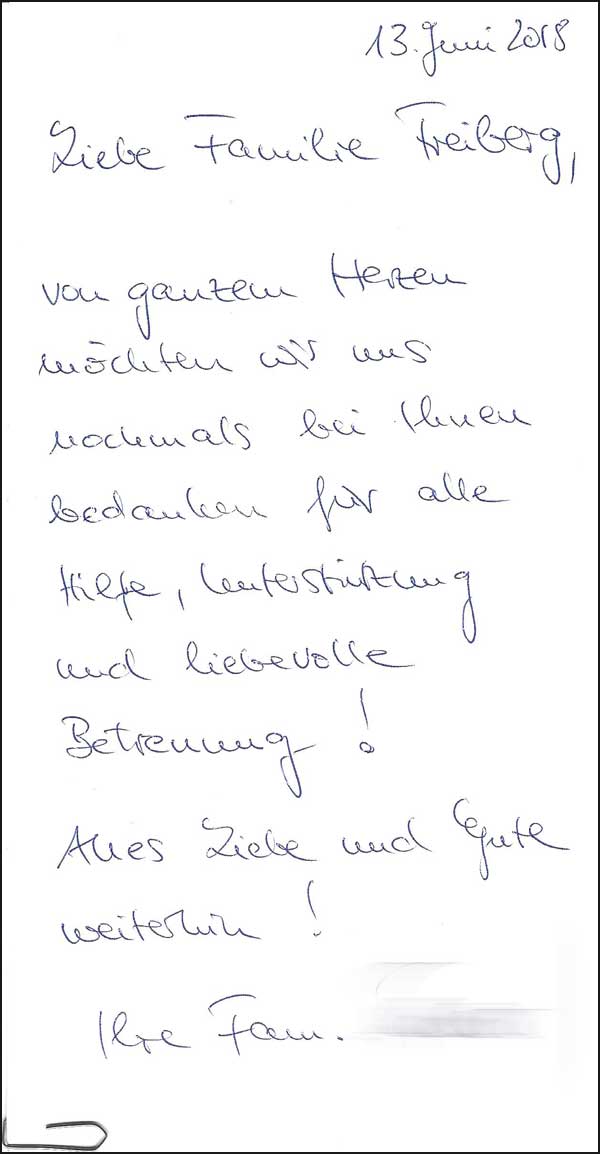 13. Juni 2018
Liebe Familie Freiberg,
von ganzem Herzen
möchten wir uns
nochmals bei Ihnen
bedanken für alle
Hilfe, Unterstützung
und liebevolle
Betreuung!
Alles Liebe und Gute
weiterhin!
Ihre Fam.